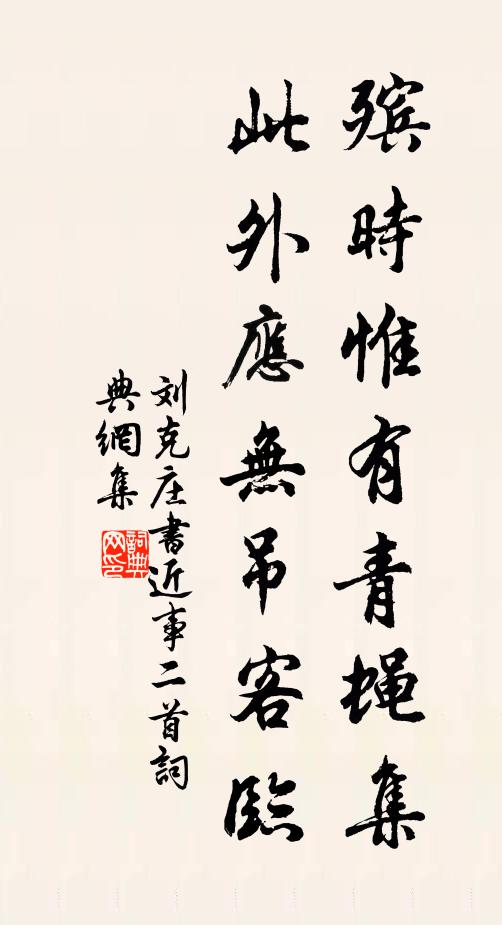 殡時惟有青蝇集
此外應無吊客臨
刘克庄書近事二首詞
典網集
詞典网印